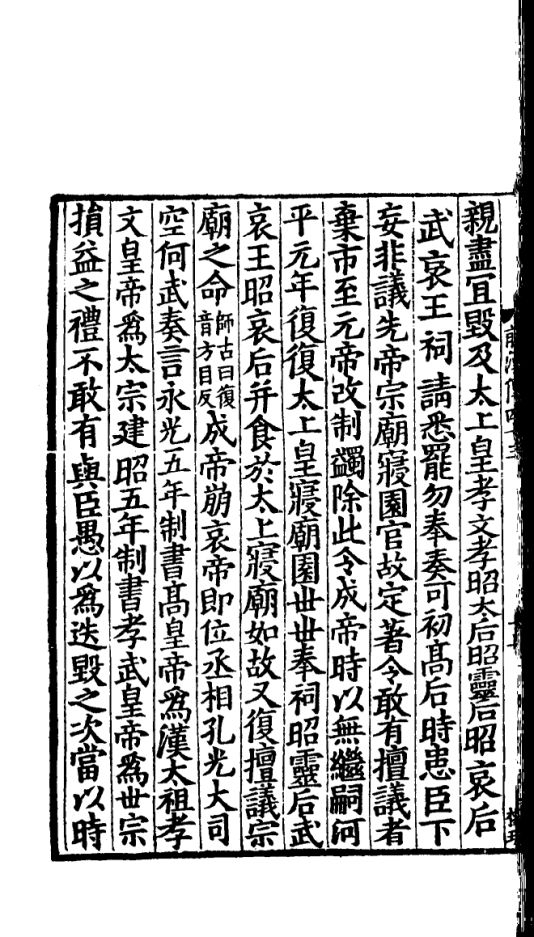 親盡宜毀及太上皇孝文孝昭太后昭靈后昭哀后
武哀王祠請悉罷勿奉奏可初髙后時患臣下
妄非議先帝宗廟寢園官故定著令敢有擅議者
棄市至元帝改制蠲除此令成帝時以無繼嗣河
平元年復復太上皇寢廟園世世奉祠昭靈后武
哀王昭哀后并食於太上寢廟如故又復擅議宗
廟之命師古曰復音方目反成帝崩哀帝即位丞相孔光大司
空何武奏言永光五年制書髙皇帝爲漢太祖孝
文皇帝爲太宗建昭五年制書孝武皇帝爲世宗
損益之禮不敢有與臣愚以爲迭毀之次當以時